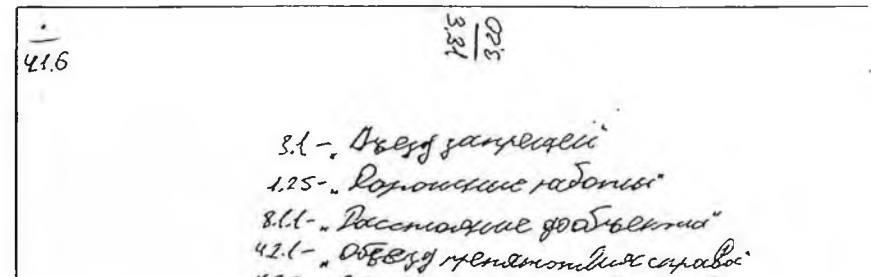 4.1.6
3.20
3.31
3.1 - „Въезд запрещен"
1.25 - „Дорожные работы"
8.1.1 - „Расстояние до объекта"
4.2.1 - „Объезд препятствия справа"